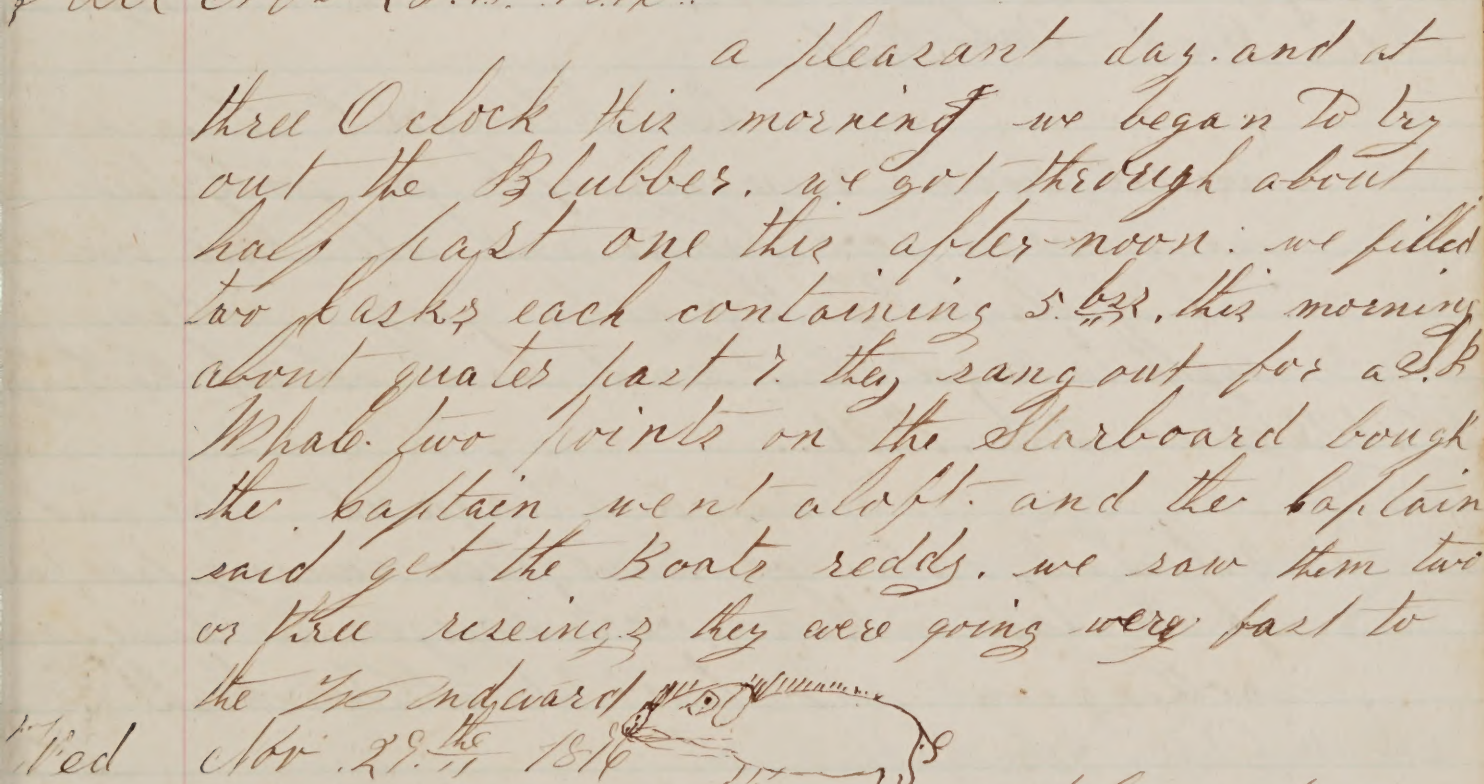 a pleasant day. and at
three O clock this morning we began to try
out the Blubber. we got through about
half past one this after-noon: we filled
two Casks each containing 5. bzs. this morning
about quater past 7. they sang out for a
Whale. two points on the Starboard bough
the Captain went aloft. and the Captain
said get the Boats reddy. we saw them two
or three riseings they were going wery fast to
the Windward
Wed Nov. 29.th